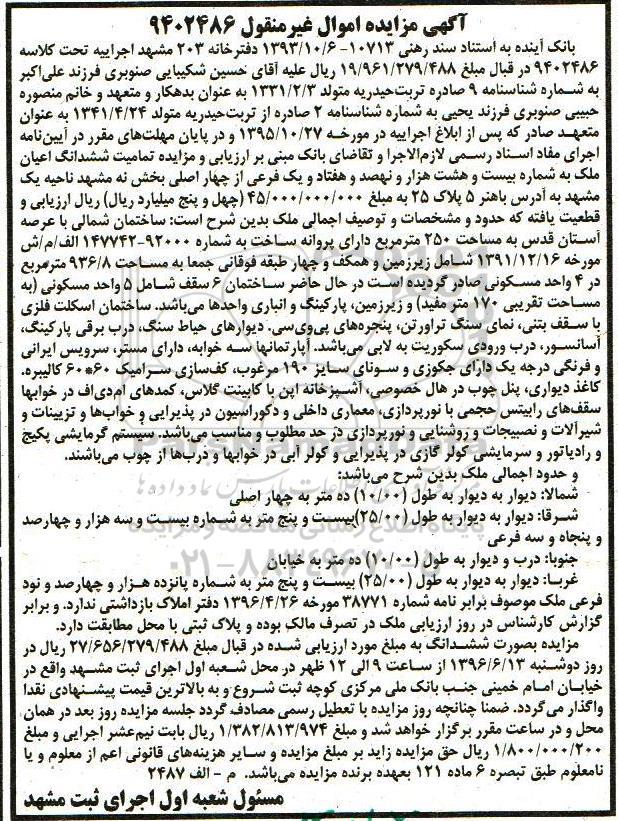 آگهی مزایده اموال غیرمنقول ۹۴۰۲۴۸۶
بانک آینده به استناد سند رهنی ۱۰۷۱۳-۱۳۹۳/۱۰/۶ دفترخانه ۲۰۳ مشهد اجراییه تحت کلاسه
۹۴۰۲۴۸۶ در قبال مبلغ ۱۹/۹۶۱/۲۷۹/۴۸۸ ریال علیه آقای حسین شکیبایی صنوبری فرزند علی‌اکبر
به شماره شناسنامه ۹ صادره تربت‌حیدریه متولد ۱۳۳۱/۲/۳ به عنوان بدهکار و متعهد و خانم منصوره
حبیبی صنوبری فرزند یحیی به شماره شناسنامه ۲ صادره از تربت‌حیدریه متولد ۱۳۴۱/۴/۲۴ به عنوان
متعهد صادر که پس از ابلاغ اجراییه در مورخه ۱۳۹۵/۱۰/۲۷ و در پایان مهلت‌های مقرر در آیین‌نامه
اجرای مفاد اسناد رسمی لازم‌الاجرا و تقاضای بانک مبنی بر ارزیابی و مزایده تمامیت ششدانگ اعیان
ملک به شماره بیست و هشت هزار و نهصد و هفتاد و یک فرعی از چهار اصلی بخش نه مشهد ناحیه یک
مشهد به آدرس باهنر ۵ پلاک ۲۵ به مبلغ ۴۵/۰۰۰/۰۰۰/۰۰۰ (چهل و پنج میلیارد ریال) ریال ارزیابی و
قطعیت یافته که حدود و مشخصات و توصیف اجمالی ملک بدین شرح است: ساختمان شمالی با عرصه
آستان قدس به مساحت ۲۵۰ مترمربع دارای پروانه ساخت به شماره ۹۲۰۰۰-۱۴۷۷۴۲ الف/م/ش
مورخه ۱۳۹۱/۱۲/۱۶ شامل زیرزمین و همکف و چهار طبقه فوقانی جمعا به مساحت ۹۳۶/۸ مترمربع
در ۴ واحد مسکونی صادر گردیده است در حال حاضر ساختمان ۶ سقف شامل ۵ واحد مسکونی (به
مساحت تقریبی ۱۷۰ متر مفید) و زیرزمین، پارکینگ و انباری واحدها می‌باشد. ساختمان اسکلت فلزی
با سقف بتنی، نمای سنگ تراورتن، پنجره‌های پی‌وی‌سی. دیوارهای حیاط سنگ، درب برقی پارکینگ،
آسانسور، درب ورودی سکوریت به لابی می‌باشد. آپارتمانها سه خوابه، دارای مستر، سرویس ایرانی
و فرنگی درجه یک دارای جکوزی و سونای سایز ۱۹۰ مرغوب، کف‌سازی سرامیک ۶۰*۶۰ کالیبره.
کاغذ دیواری، پنل چوب در هال خصوصی، آشپزخانه اپن با کابینت گلاس، کمدهای ام‌دی‌اف در خوابها
سقف‌های رابیتس حجمی با نورپردازی، معماری داخلی و دکوراسیون در پذیرایی و خواب‌ها و تزیینات و
شیرآلات و نصبیجات و روشنایی و نورپردازی در حد مطلوب و مناسب می‌باشد. سیستم گرمایشی پکیج
و رادیاتور و سرمایشی کولر گازی در پذیرایی و کولر آبی در خوابها و درب‌ها از چوب می‌باشند.
و حدود اجمالی ملک بدین شرح می‌باشد:
شمالا: دیوار به دیوار به طول (۱۰/۰۰) ده متر به چهار اصلی
شرقا: دیوار به دیوار به طول (۲۵/۰۰)بیست و پنج متر به شماره بیست و سه هزار و چهارصد
و پنجاه و سه فرعی
جنوبا: درب و دیوار به طول (۱۰/۰۰) ده متر به خیابان
غربا: دیوار به دیوار به طول (۲۵/۰۰) بیست و پنج متر به شماره پانزده هزار و چهارصد و نود
فرعی ملک موصوف برابر نامه شماره ۳۸۷۷۱ مورخه ۱۳۹۶/۴/۲۶ دفتر املاک بازداشتی ندارد. و برابر
گزارش کارشناس در روز ارزیابی ملک در تصرف مالک بوده و پلاک ثبتی با محل مطابقت دارد.
مزایده بصورت ششدانگ به مبلغ مورد ارزیابی شده در قبال مبلغ ۲۷/۶۵۶/۲۷۹/۴۸۸ ریال در
روز دوشنبه ۱۳۹۶/۶/۱۳ از ساعت ۹ الی ۱۲ ظهر در محل شعبه اول اجرای ثبت مشهد واقع در
خیابان امام خمینی جنب بانک ملی مرکزی کوچه ثبت شروع و به بالاترین قیمت پیشنهادی نقدا
واگذار می‌گردد. ضمنا چنانچه روز مزایده با تعطیل رسمی مصادف گردد جلسه مزایده روز بعد در همان
محل و در ساعت مقرر برگزار خواهد شد و مبلغ ۱/۳۸۲/۸۱۳/۹۷۴ ریال بابت نیم‌عشر اجرایی و مبلغ
۱/۸۰۰/۰۰۰/۲۰۰ ریال حق مزایده زاید بر مبلغ مزایده و سایر هزینه‌های قانونی اعم از معلوم و یا
نامعلوم طبق تبصره ۶ ماده ۱۲۱ بعهده برنده مزایده می‌باشد. م - الف ۲۴۸۷
مسئول شعبه اول اجرای ثبت مشهد